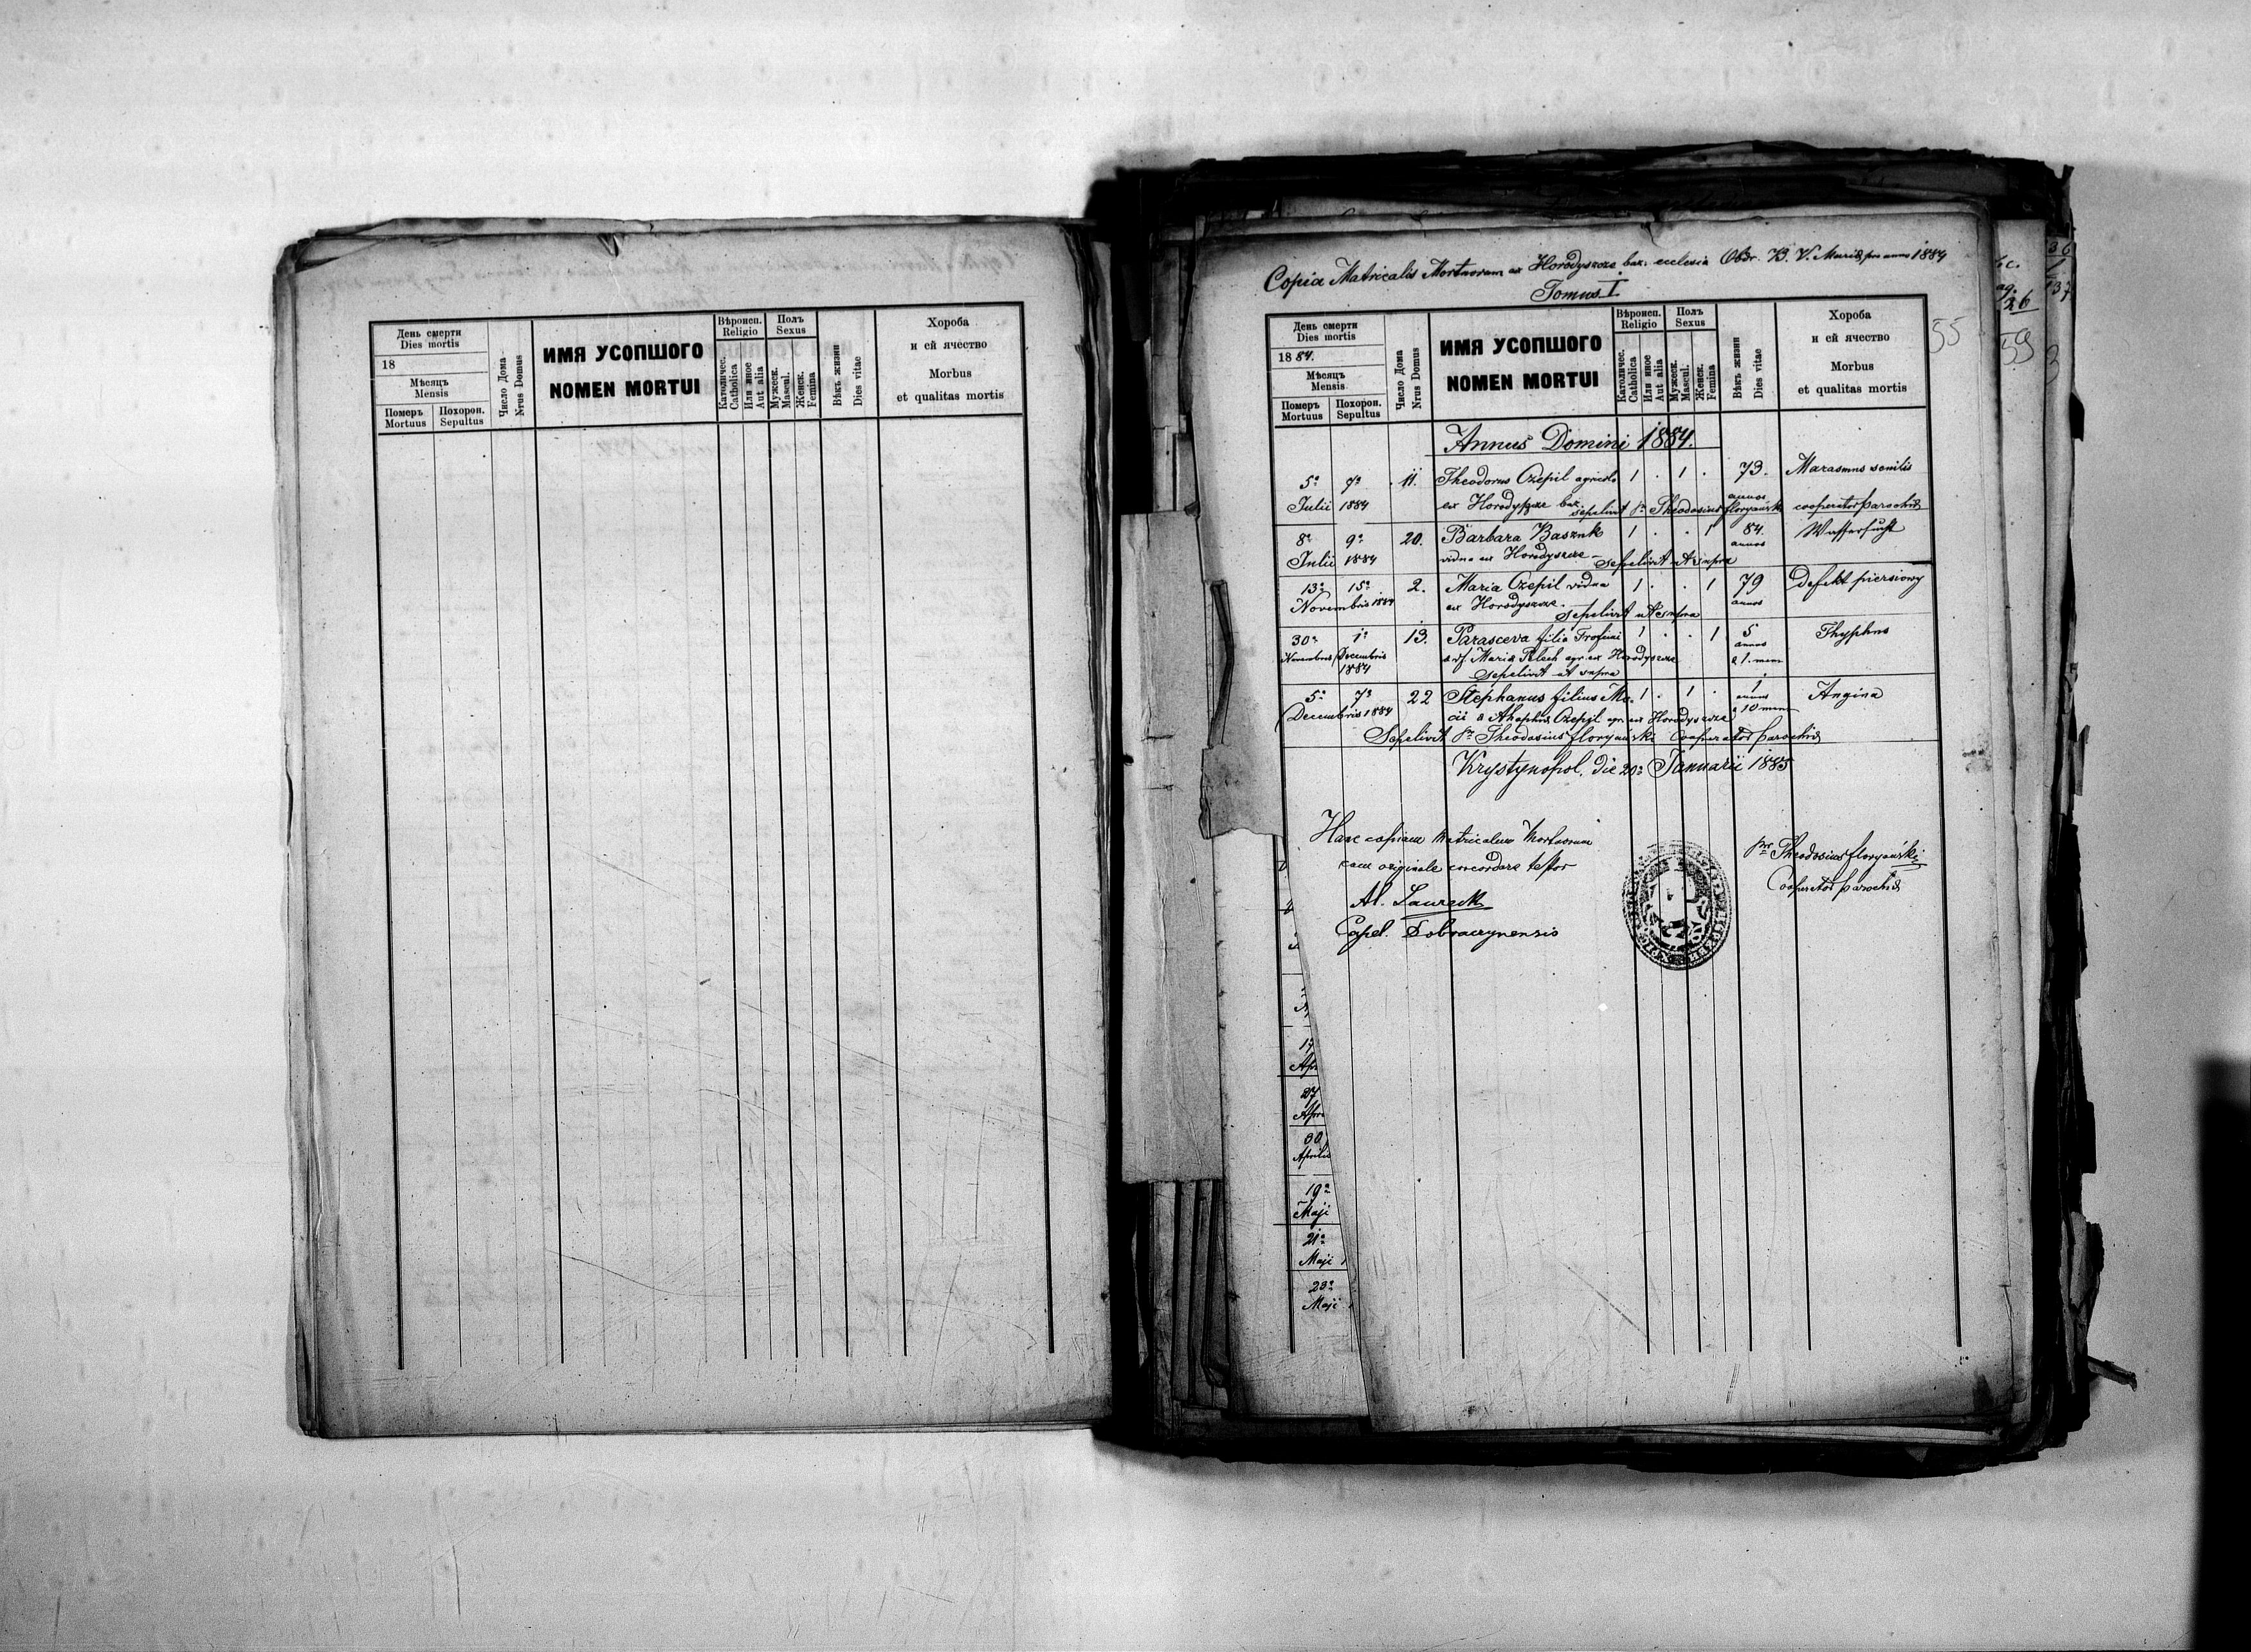 День смерти
Dies mortis
18
Мѣсяцъ
Mensis
Померъ
Mortuus
Похорон.
Sepultus
Число Дома
Nrus Domus
ИМЯ УСОПШОГО
NOMEN MORTUI
Вѣроисп.
Religio
Католичес.
Catholica
Или иное
Aut alia
Полъ
Sexus
Мужеск.
Mascul.
Женск.
Femina
Вѣкъ жизни
Dies vitae
Хороба
и ей ячество
Morbus
et qualitas mortis
Copia Matricalis Mortuorum ex Horodyszcze baz. ecclesia Obdr. B. V. Mariae pro anno 1884
Tomus I
День смерти
Dies mortis
1884.
Мѣсяцъ
Mensis
Померъ
Mortuus
Похорон.
Sepultus
Число Дома
Nrus Domus
ИМЯ УСОПШОГО
NOMEN MORTUI
Вѣроисп.
Religio
Католичес.
Catholica
Или иное
Aut alia
Полъ
Sexus
Мужеск.
Mascul.
Женск.
Femina
Вѣкъ жизни
Dies vitae
Хороба
и ей ячество
Morbus
et qualitas mortis
55
59
26
Annus Domini 1884.
5a 7a 11. Theodorus Czepil agricola 1 . 1 . 73. Marasmus senilis
Julii 1884 ex Horodyszcze baz. sepelivit pr Theodosius Floryański annos cooperator parochiae
8a 9a 20. Barbara Basznk 1 . . 1 84. Wassersucht
Julii 1884 vidua ex Horodyszcze – sepelivit ut supra annos
13a 15a 2. Maria Czepil vidua 1 . . 1 79 defekt piersiowy
Novembris 1884 ex Horodyszcze. sepelivit ut supra annos
30a 1a 13. Parasceva filia Trofimi 1 . . 1 5 Thyphus
Novembris Decembris 1884 Maria Pelech agr. ex Horodyszcze annos 1. men
sepelivit ut supra
5a 7a 22 Stephanus filius Ma- 1 . 1 . 1 Angina
Decembris 1884 Czepil agr. ex Horodyszcze annus 10 men
Sepelivit pr Theodosius Floryański Cooperator parochiae
Krystynopol, die 20a Januarii 1885
Hanc copiam Matricalem Mortuorum
cum originale concordare testor
Al. Laurecki
Capel. Dobraczynensis
pr Theodosius Floryański
Cooperator parochiae
17
Apr
27
Apri
30
Aprilis
19a
Maji
21a
Maji
23a
Maji